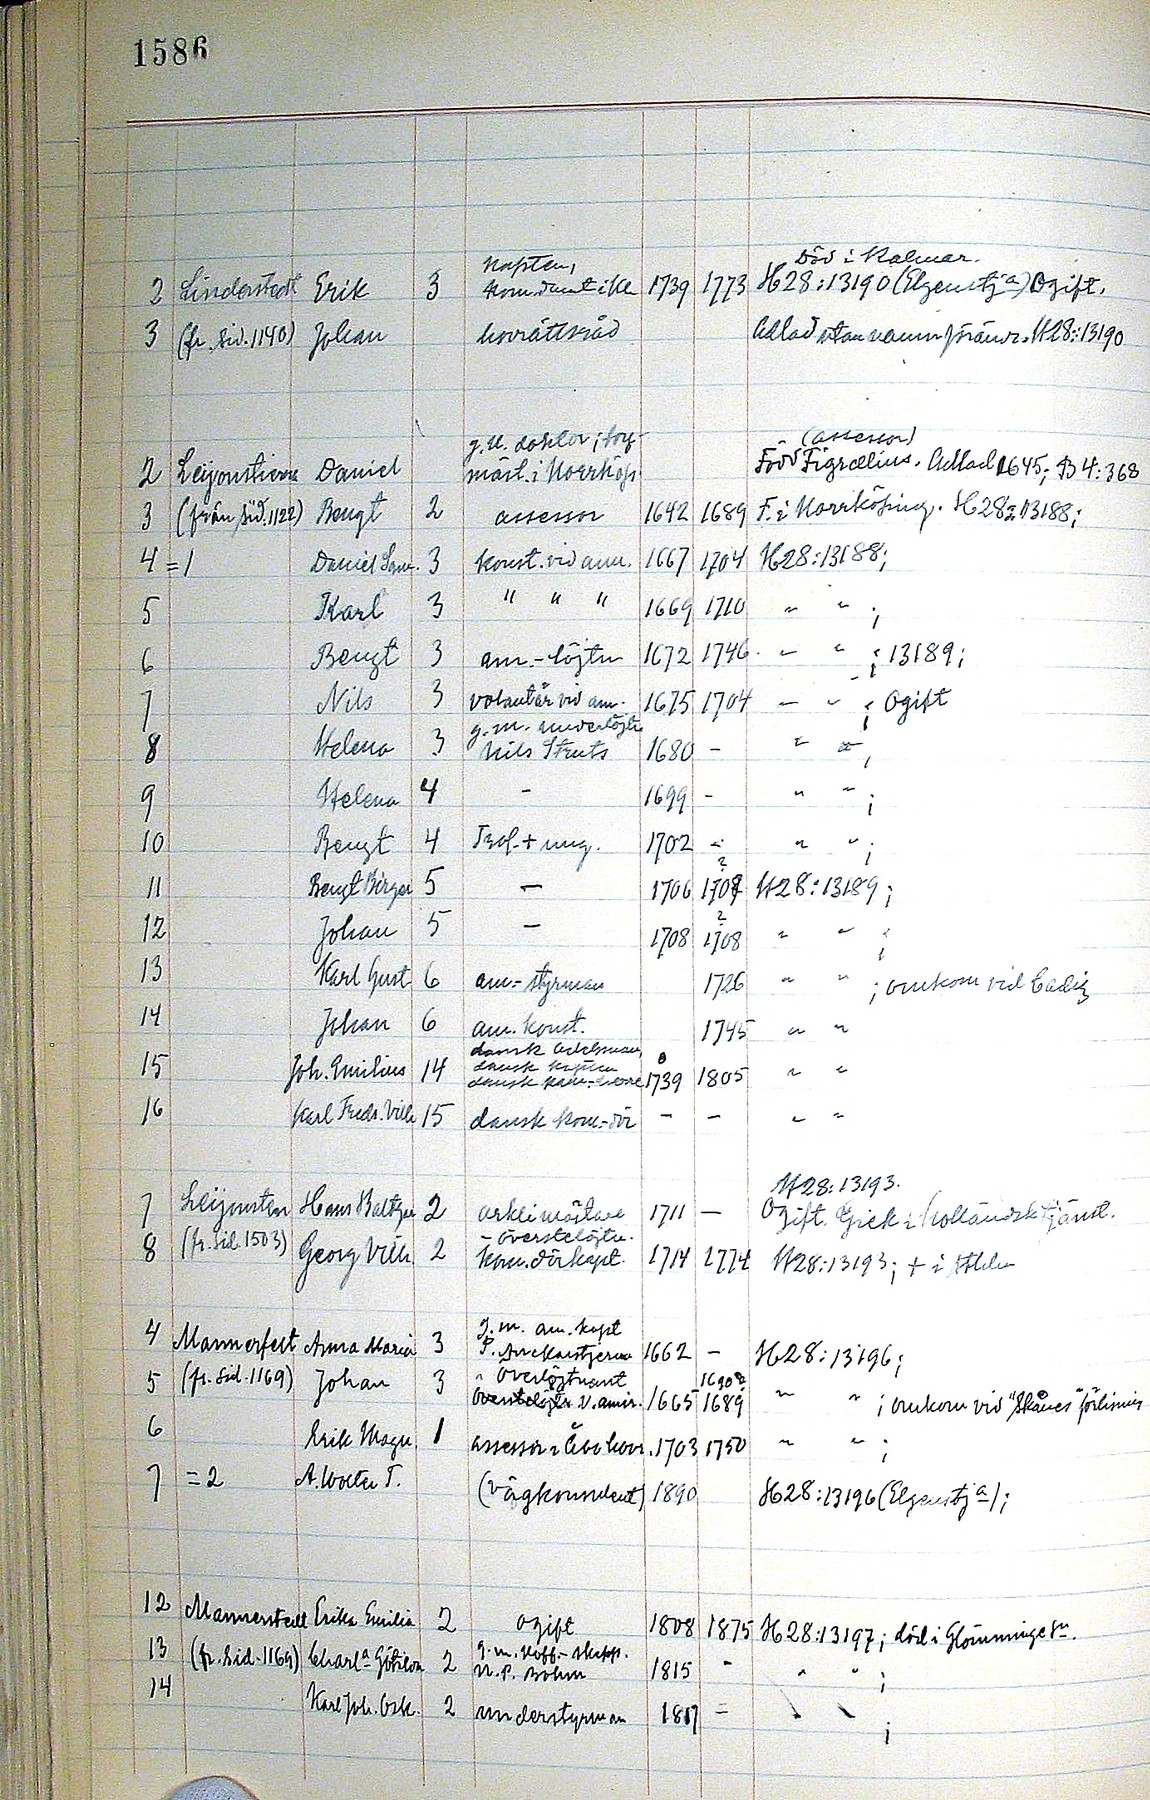 1586
kapten, Död i Kalmar.
2 Linderstedt Erik 3 1739 1773 H28:13190 (Elgenstja) Ogift.
3 (fr. Sid. 1140) Johan hovrättsråd Adlad utan namnförändr. H28:13190
g.m. doktor; borg- (assessor)
2 Leijonstierna Daniel mäst. i Norrköp. Född Figrælius. Adlad 1645; B4:368
3 (från sid. 1122) Bengt 2 assessor 1642 1689 F. i Norrköping. H28:13188;
4 =1 Daniel Sam. 3 konst. vid am. 1667 1704 H28:13188;
5 Karl 3 " " " 1669 1710 " " ;
6 Bengt 3 am.-löjtn 1672 1746 " " ; 13189;
7 Nils 3 volontär vid am. 1675 1704 " " ; Ogift
g.m. underlöjtn
8 Helena 3 Nils Struts 1680 - " " ;
9 Helena 4 - 1699 - " " ;
10 Bengt 4 + ung. 1702 - " " ;
?
11 Bengt Birger 5 - 1706 1707 H28:13189;
?
12 Johan 5 - 1708 1708 " " ;
13 Karl Gust 6 am-styrman 1726 " " ; omkom vid Cadiz
14 Johan 6 am. konst. 1745 " "
dansk adelsman
dansk kapten
15 Joh. Emilius 14 dansk kam.-herre 1739 1805 " "
16 Karl Fredr. Vilh 15 dansk kom.-dör - - " "
H28:13193.
7 Leijonsten Hans Baltzar 2 arklimästare 1711 - Ogift. Gick i holländsk tjänst.
- överstelöjtn.
8 (fr. sid 1503) Georg Vilh. 2 kom.dörkapt. 1714 1774 H28:13193; + i
g.m. am. kapt
4 Mannerfelt Anna Maria 3 P. Anckarstjerna 1662 - H28:13196;
överlöjtnant 1690?
5 (fr. Sid. 1169) Johan 3 v. amir. 1665 1689 " " ; omkom vid "Skånes" förlisning
6 Erik Magn 1 assessor i Åbo hovr. 1703 1750 " " ;
7 =2 A. Wolter T. (vägkonsulent) 1890 H28:13196 (Elgenstja);
12 Mannerstedt Erika Emilia 2 ogift 1808 1875 H28:13197; död i Glömminge sn.
g.m. koff.-skepp.
13 (fr. Sid. 1169) Charla Götilda 2 N.P. Bohm 1815 - " " ;
14 Karl Joh. Osk. 2 understyrman 1817 - " " ;